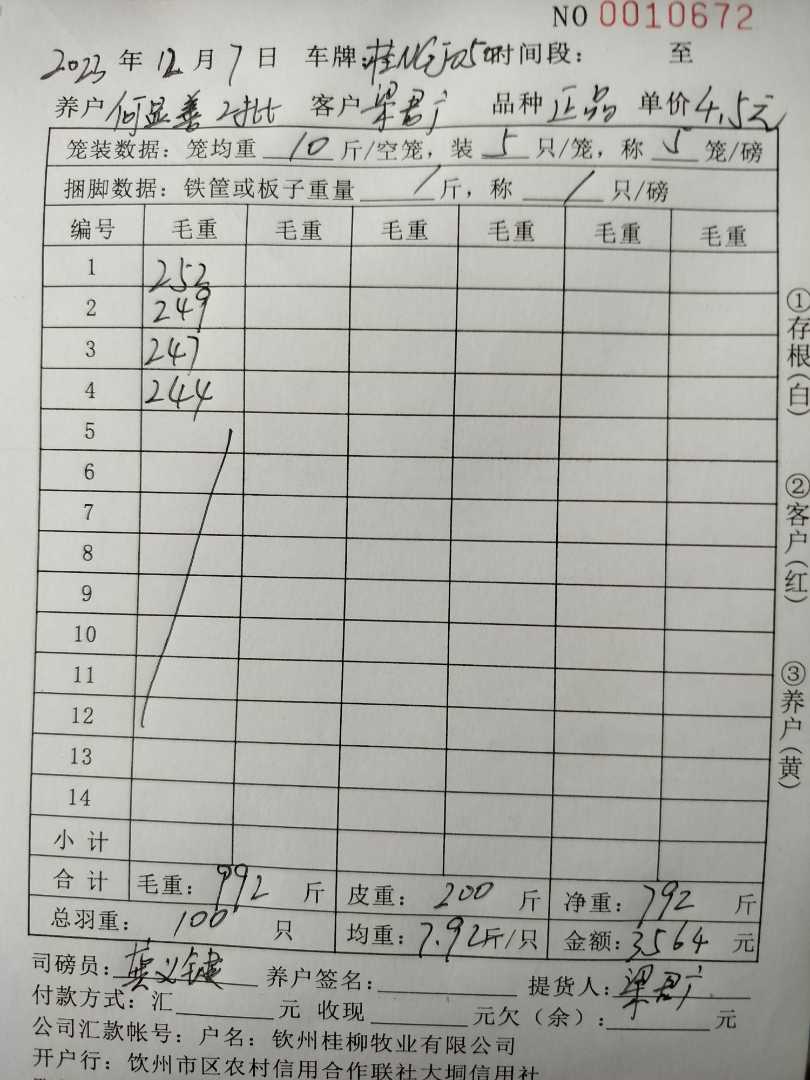 NO 0010672
2023 年 12 月 7 日 车牌: 时间段: 至
养户 何显善 2对比 客户 梁君广 品种 正品 单价 4.5元
笼装数据: 笼均重 10 斤/空笼, 装 5 只/笼, 称 5 笼/磅
捆脚数据: 铁筐或板子重量 / 斤, 称 / 只/磅
编号 毛重 毛重 毛重 毛重 毛重 毛重
1 252
2 249
3 247
4 244
5
6
7
8
9
10
11
12
13
14
小 计
合 计 毛重: 992 斤 皮重: 200 斤 净重: 792 斤
总羽重: 100 只 均重: 7.92斤/只 金额: 3564 元
司磅员: 龚义键 养户签名: 提货人: 梁君广
付款方式: 汇 元 收现 元欠(余): 元
公司汇款帐号: 户名: 钦州桂柳牧业有限公司
开户行: 钦州市区农村信用合作联社大垌信用社
①存根(白)
②客户(红)
③养户(黄)